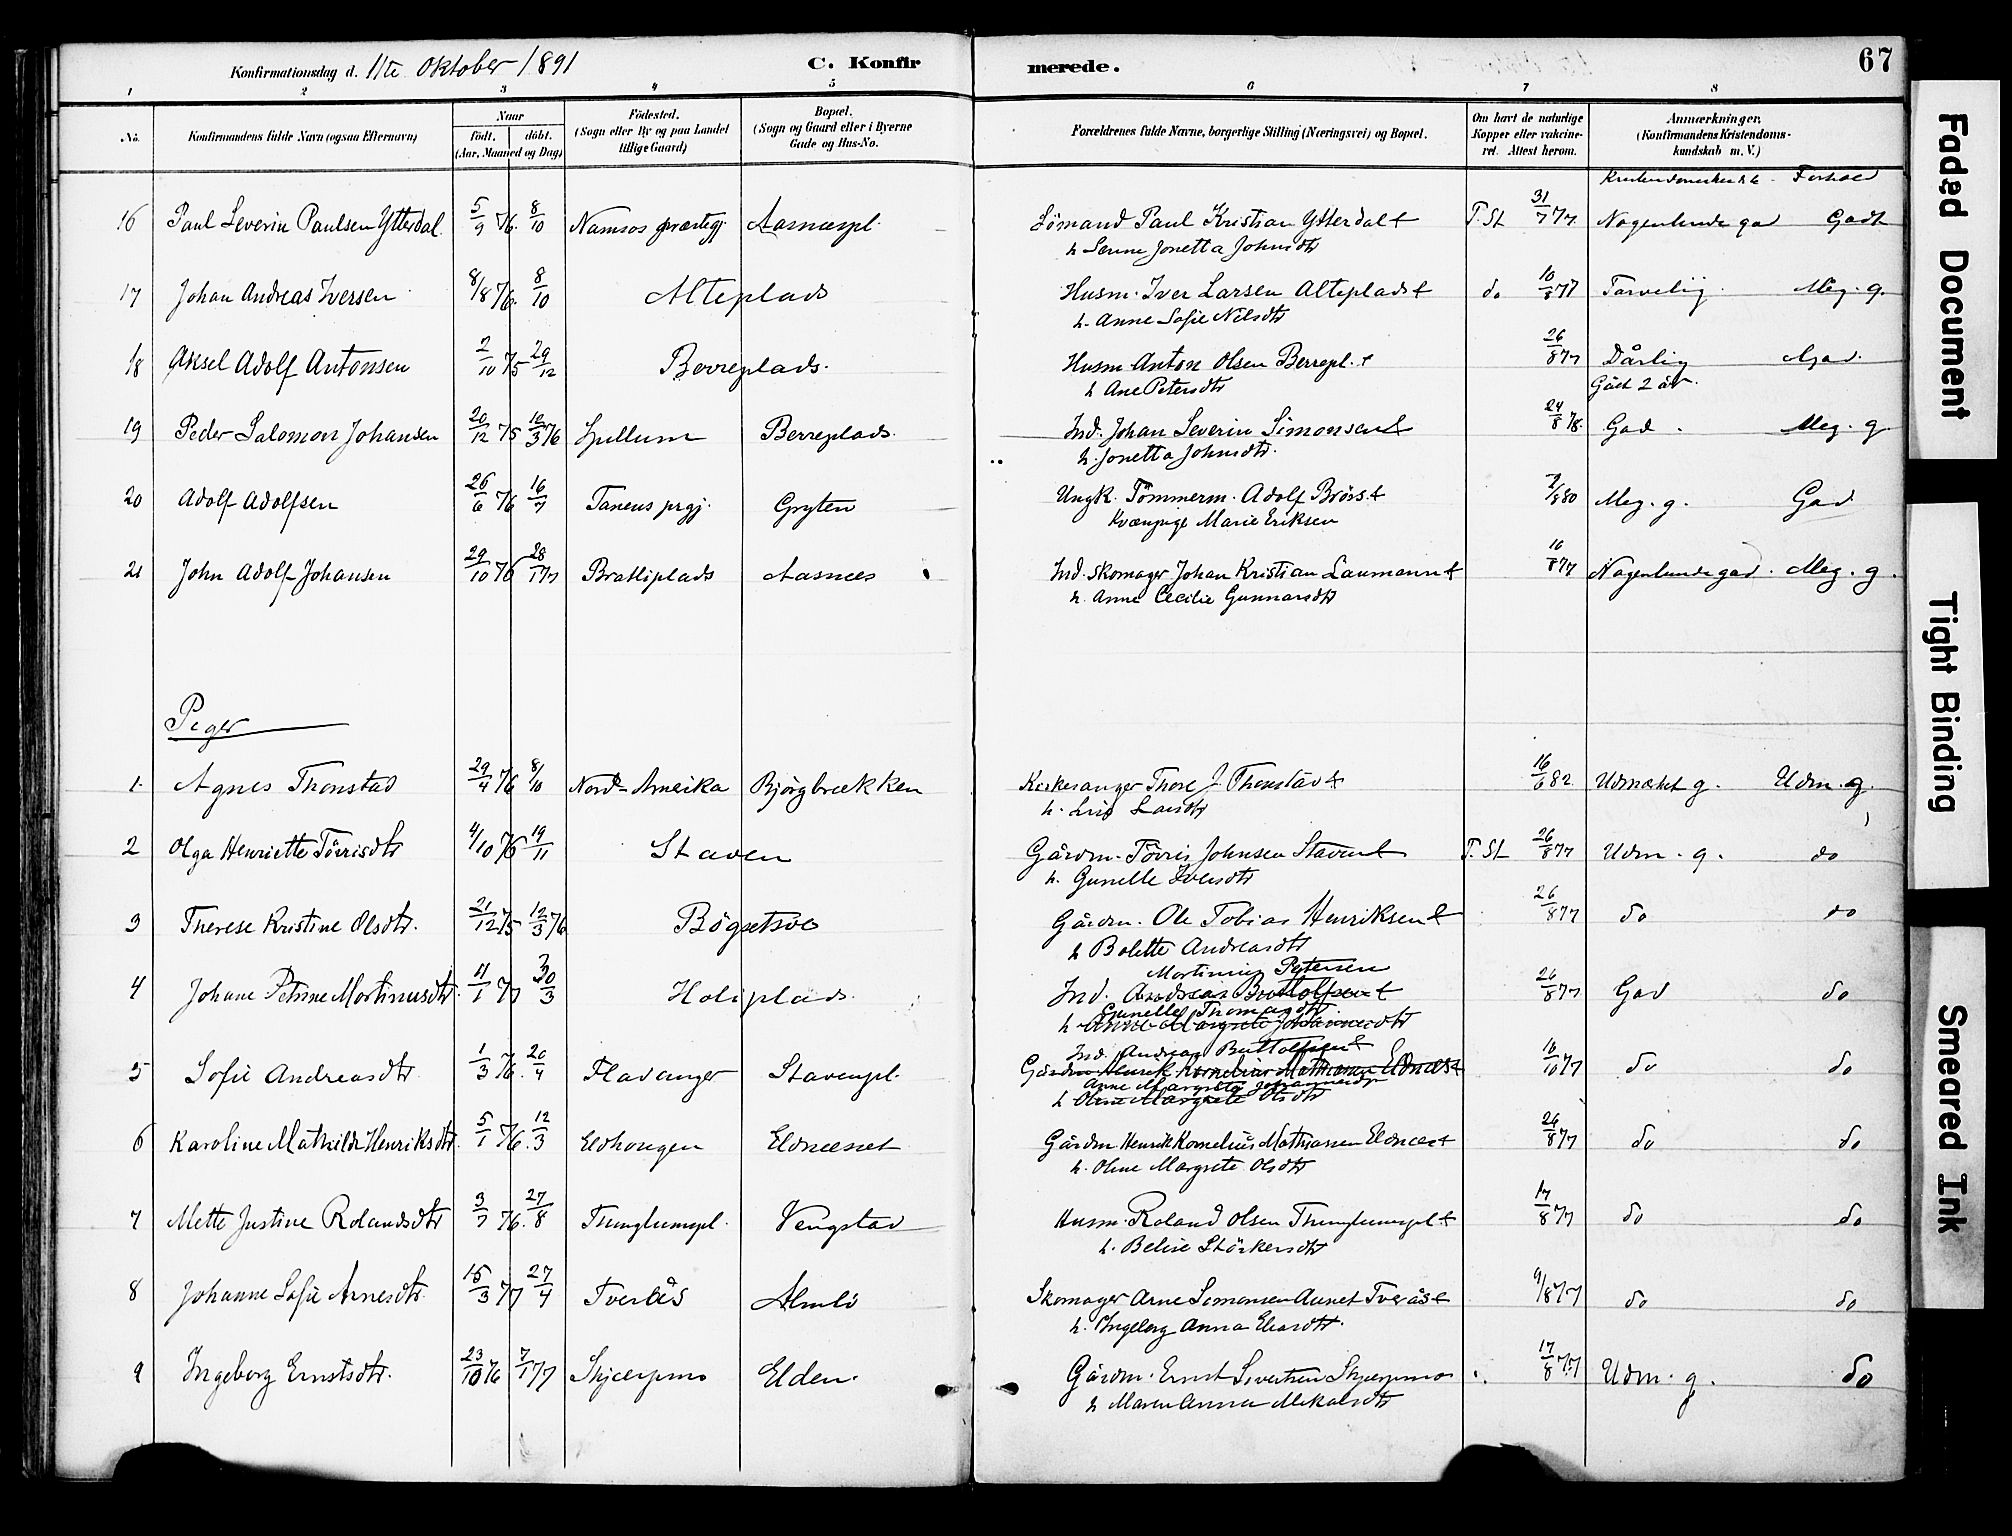 Konfirmationsdag d. 11te Oktober 1891
C. Konfirmerede.
67
1 2 3 4 5 6 7 8
No.
Konfirmandens fulde Navn (ogsaa Efternavn)
Naar
født. døbt.
(Aar, Maaned og Dag)
Fødested.
(Sogn eller By og paa Landet
tillige Gaard)
Bopæl.
(Sogn og Gaard eller i Byerne
Gade og Hus-No.
Forældrenes fulde Navne, borgerlige Stilling (Næringsvei) og Bopæl.
Om havt de naturlige
Kopper eller vakcine-
ret. Attest herom.
Anmærkninger.
(Konfirmandens Kristendoms-
kundskab m. V.)
Forhold
16 Paul Severin Paulsen Ytterdal 5/9 76. 8/10 Namsos præstegj. Aasnæspl. Sømand Paul Kristian Ytterdal & T. St 31/7 77 Nogenlunde god Godt
h. Jonetta Johnsdtr
17 Johan Andreas Iversen 8/8 76. 8/10 Alteplads Husm. Iver Larsen Alteplads & do 10/8 77 Tarvelig. Meg. g.
h. Anne Sofie Nilsdtr
18 Aksel Adolf Antonsen 2/10 75 29/12 Berreplads. Husm Anton Olsen Berrepl. & 26/8 77 Dårlig God.
h Ane Petersdtr Gået 2 år.
19 Peder Salomon Johansen 20/12 75 12/3 76 Spillum Berreplads. Ind. Johan Severin Simonsen & 24/8 78. God. Meg. g
h. Jonetta Johnsdtr.
20 Adolf Adolfsen 26/6 76 16/7 Tanens prgj. Gryten Ungk. Tømmerm. Adolf Brørs & 2/8 80 Meg. g. God
Kvænpige Marie Eriksen
21 John Adolf Johansen 29/10 76 28/1 77 Bratliplads Aasnæs Ind. Skomager Johan Kristian Laumann & 16/8 77 Nogenlunde god. Meg. g.
h. Anne Cecilie Gunnarsdtr
Piger
1. Agnes Thonstad 29/4 76 8/10 Nord-Amerika Bjørgbrækken Kirkesanger Thore J. Thonstad & 16/6 82. Udmærket g. Udm. g.
h. Larsdtr
2 Olga Henriette Tørrisdtr 4/10 76 19/11 Staven Gårdm. Tørris Johnsen Staven & T. St 26/8 77 Udm. g. do
h. Gunelle Iversdtr
3 Therese Kristine Olsdtr. 21/12 75 12/3 76 Bøgsetvo Gårdm. Ole Tobias Henriksen & 26/8 77 do do
h Bolette Andreasdtr
Martinus Petersen
4 Johane Petrine Martinusdtr. 4/1 77 30/3 Holiplads. Ind. Andreas Buttolfsen & 26/8 77 God do
Gunelle Thomasdtr
h Anne Margrete Johannesdtr
Ind. Andreas Buttolfsen &
5 Sofie Andreasdtr 1/3 76. 20/4 Flavanger Stavenpl. Gårdm Henrik Kornelius Mathiassen Eldnes & 16/10 77 do do
Anne Margrete Johannesdtr
h Oline Margrete Olsdtr
6 Karoline Mathilde Henriksdtr. 5/1 76. 12/3 Eldhaugen Eldnesset Gårdm Henrik Kornelius Mathiassen Eldnes & 26/8 77 do do
h. Oline Margrete Olsdtr
7 Mette Justine Rolandsdtr 3/7 76. 27/8 Vengstad Husm. Roland Olsen & 17/8 77 do do
h. Størkersdtr
8 Johanne Sofie Arnesdtr. 15/3 77 27/4 Tverås Almli Skomager Arne Simonsen Aunet Tverås & 9/8 77 do do
h. Ingeborg Anna
9 Ingeborg Ernstsdtr. 23/10 76 7/1 77 Skjærpmo Elden. Gårdm. Ernst Sivertsen Skjærpmo 17/8 77 Udm. g. do
h Maren Anna Mikalsdtr
Faded Document
Tight Binding
Smeared Ink